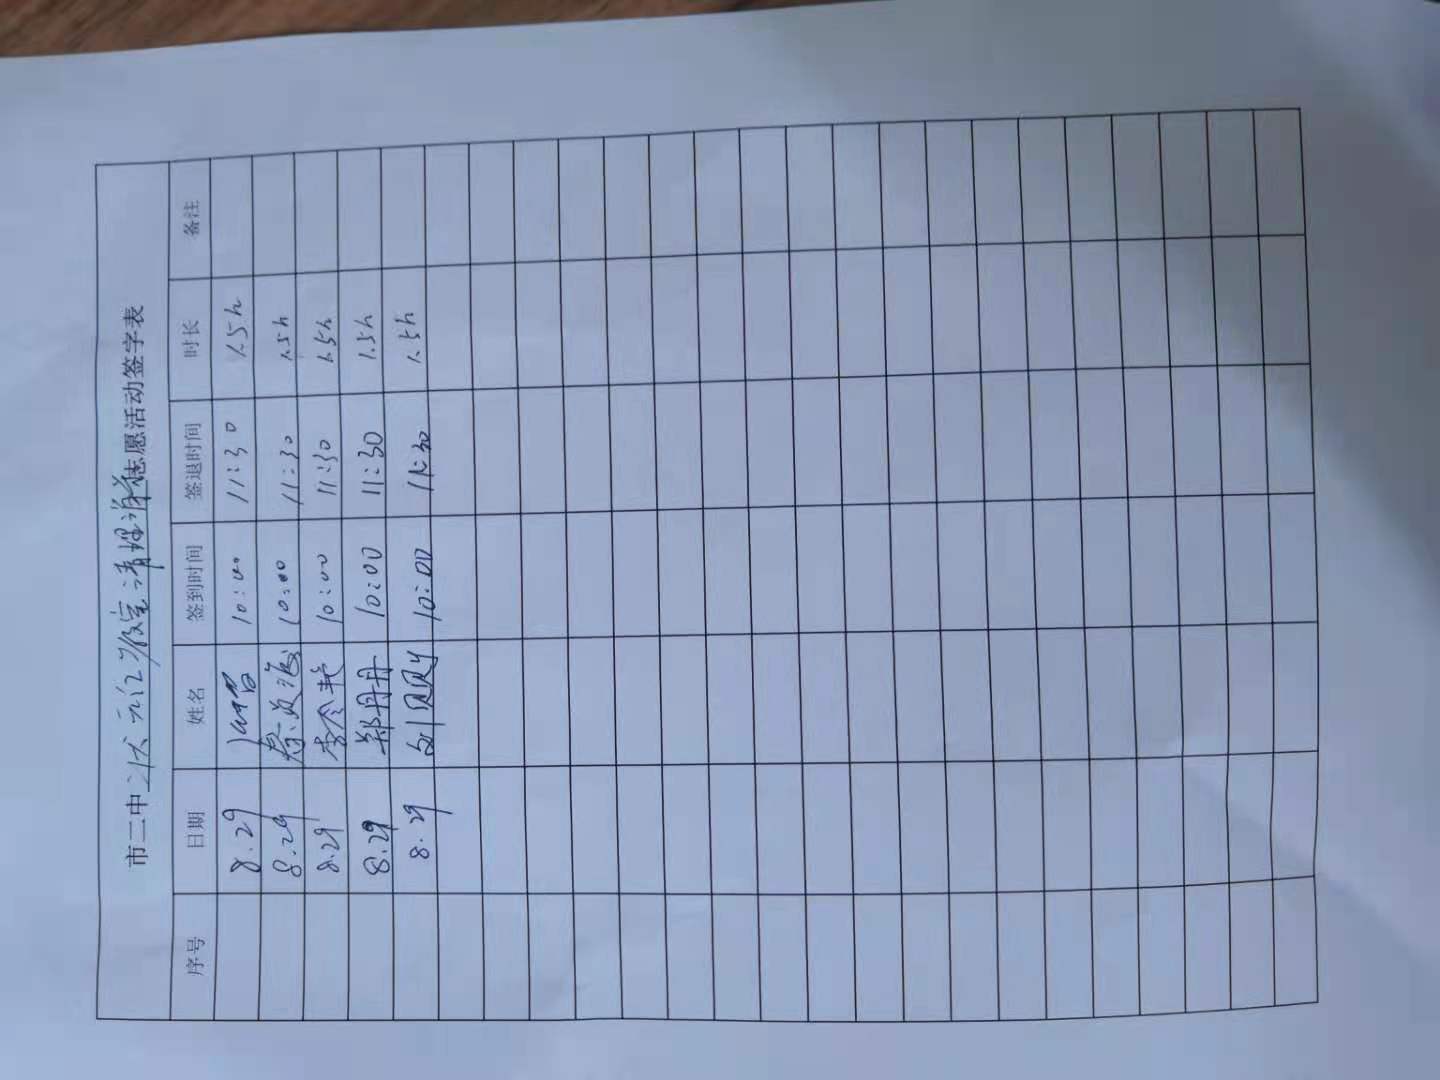 市二中 教室清理 志愿活动签字表
序号 日期 姓名 签到时间 签退时间 时长 备注
8.29 10:00 11:30 1.5h
8.29 10:00 11:30 1.5h
8.29 李 艳 10:00 11:30 1.5h
8.29 郑丹丹 10:00 11:30 1.5h
8.29 刘贝贝 10:00 11:30 1.5h